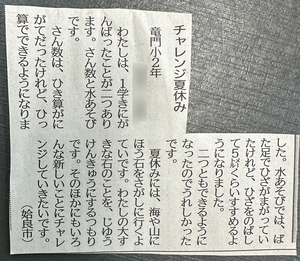 チャレンジ夏休み
竜門小2年
わたしは、1学きにが
んばったことが二つあり
ます。さん数と水あそび
です。
さん数は、ひき算がに
がてだったけれど、ひっ
算でできるようになりま
した。水あそびでは、ば
た足でひざがまがってい
たけれど、ひざをのばし
て5㍍くらいすすめるよ
うになりました。
二つともできるように
なったのでうれしかった
です。
夏休みには、海や山に
ほう石をさがしに行くよ
ていです。わたしの大す
きな石のことを、じゆう
けんきゅうにするつもり
です。そのほかにもいろ
んな新しいことにチャレ
ンジしていきたいです。
(姶良市)